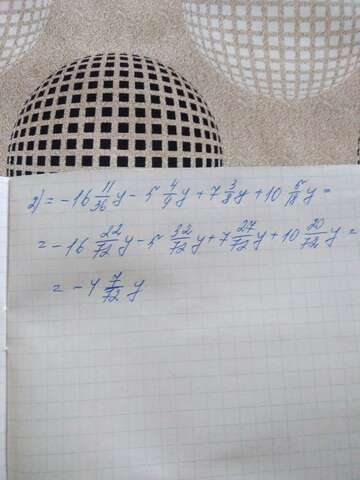 2) = -16 11/36 y - 5 4/9 y + 7 3/8 y + 10 5/18 y =
= -16 22/72 y - 5 32/72 y + 7 27/72 y + 10 20/72 y =
= -4 7/72 y